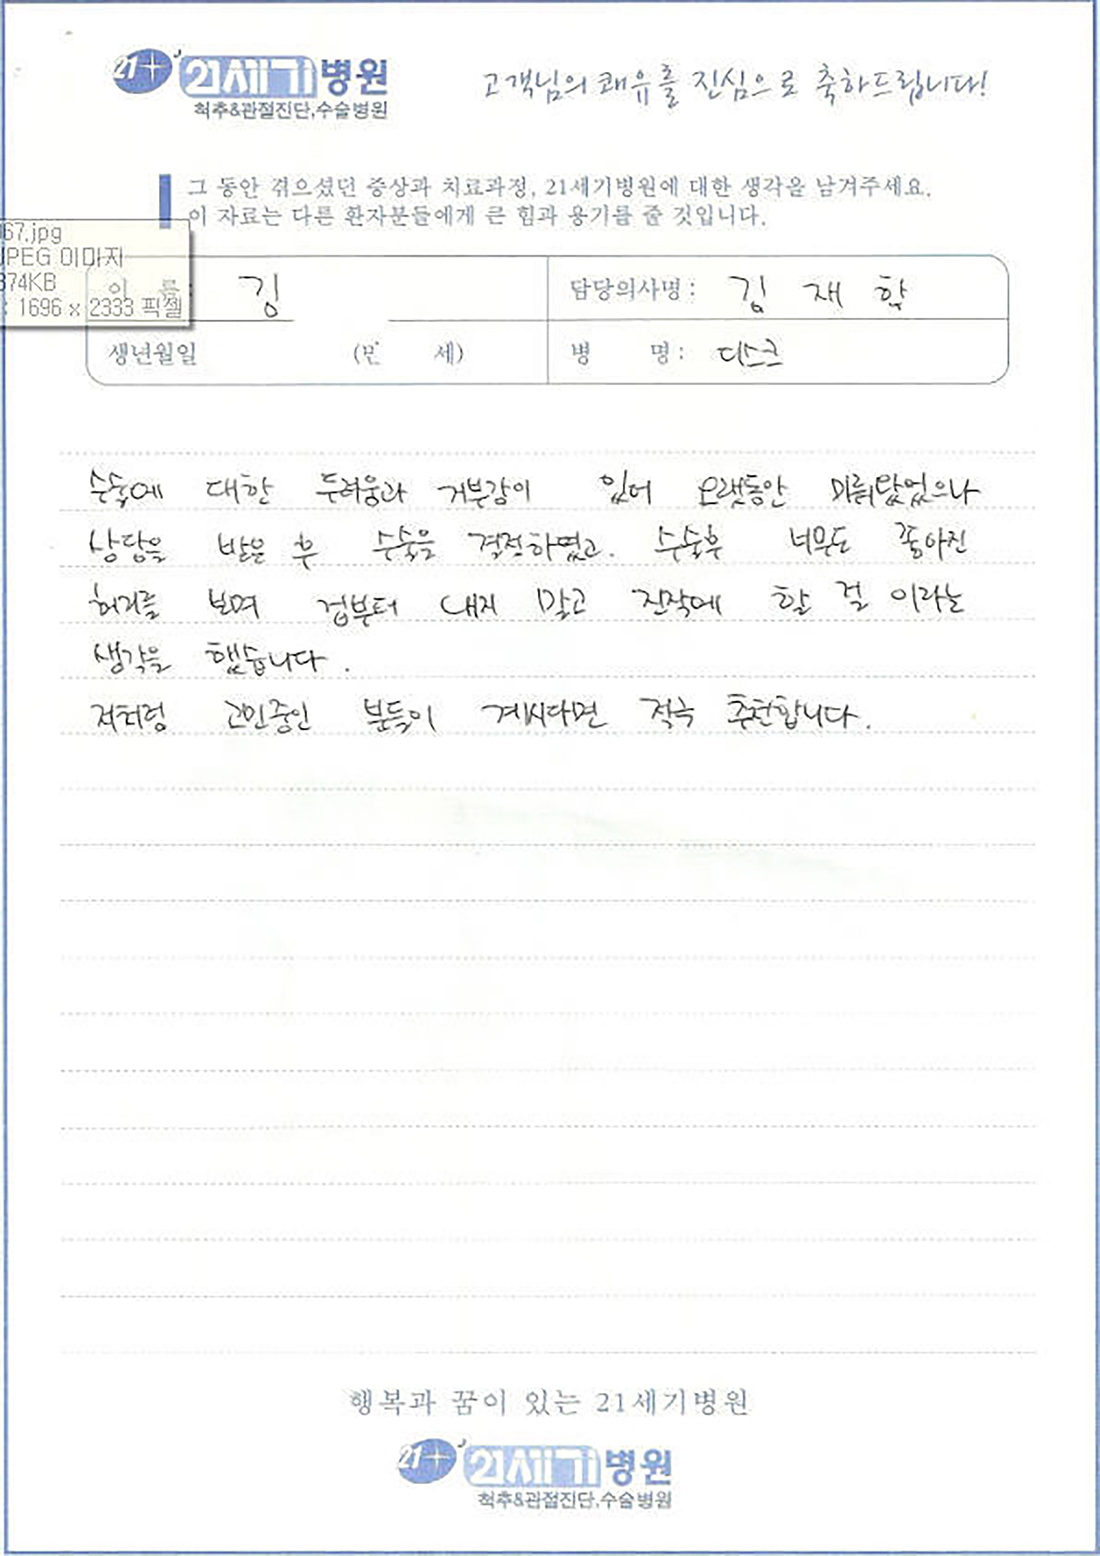 21+ 21세기병원
척추&관절진단,수술병원
고객님의 쾌유를 진심으로 축하드립니다!
그 동안 겪으셨던 증상과 치료과정, 21세기병원에 대한 생각을 남겨주세요.
이 자료는 다른 환자분들에게 큰 힘과 용기를 줄 것입니다.
67.jpg
JPEG 이미지
374KB
: 1696 x 2333 픽셀
이 름 : 김
담당의사명 : 김 재 학
생년월일 (만 세)
병 명 : 디스크
수술에 대한 두려움과 거부감이 있어 오랫동안 미뤄왔었으나
상담을 받은 후 수술을 결정하였고. 수술후 너무도 좋아진
허리를 보며 겁부터 내지 말고 진작에 할 걸 이라는
생각을 했습니다.
저처럼 고민중인 분들이 계시다면 적극 추천합니다.
행복과 꿈이 있는 21세기병원
21+ 21세기병원
척추&관절진단,수술병원